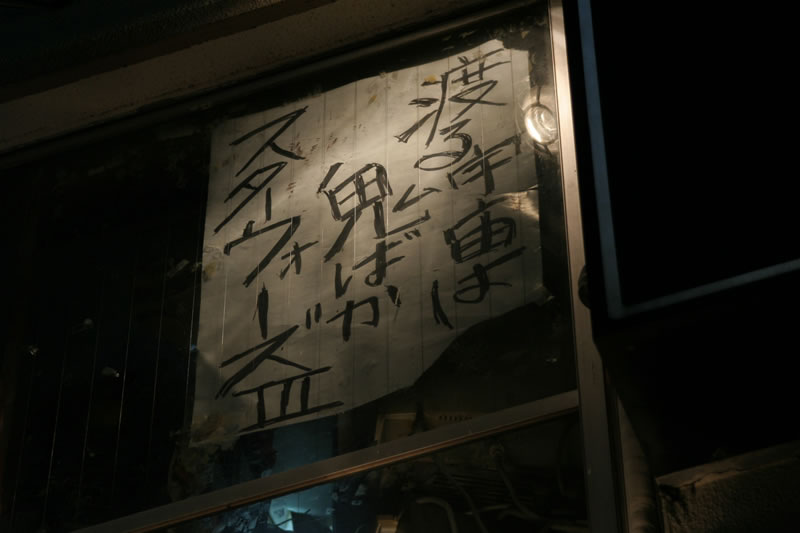 渡る宇宙は
鬼ばか
スターウォーズⅢ